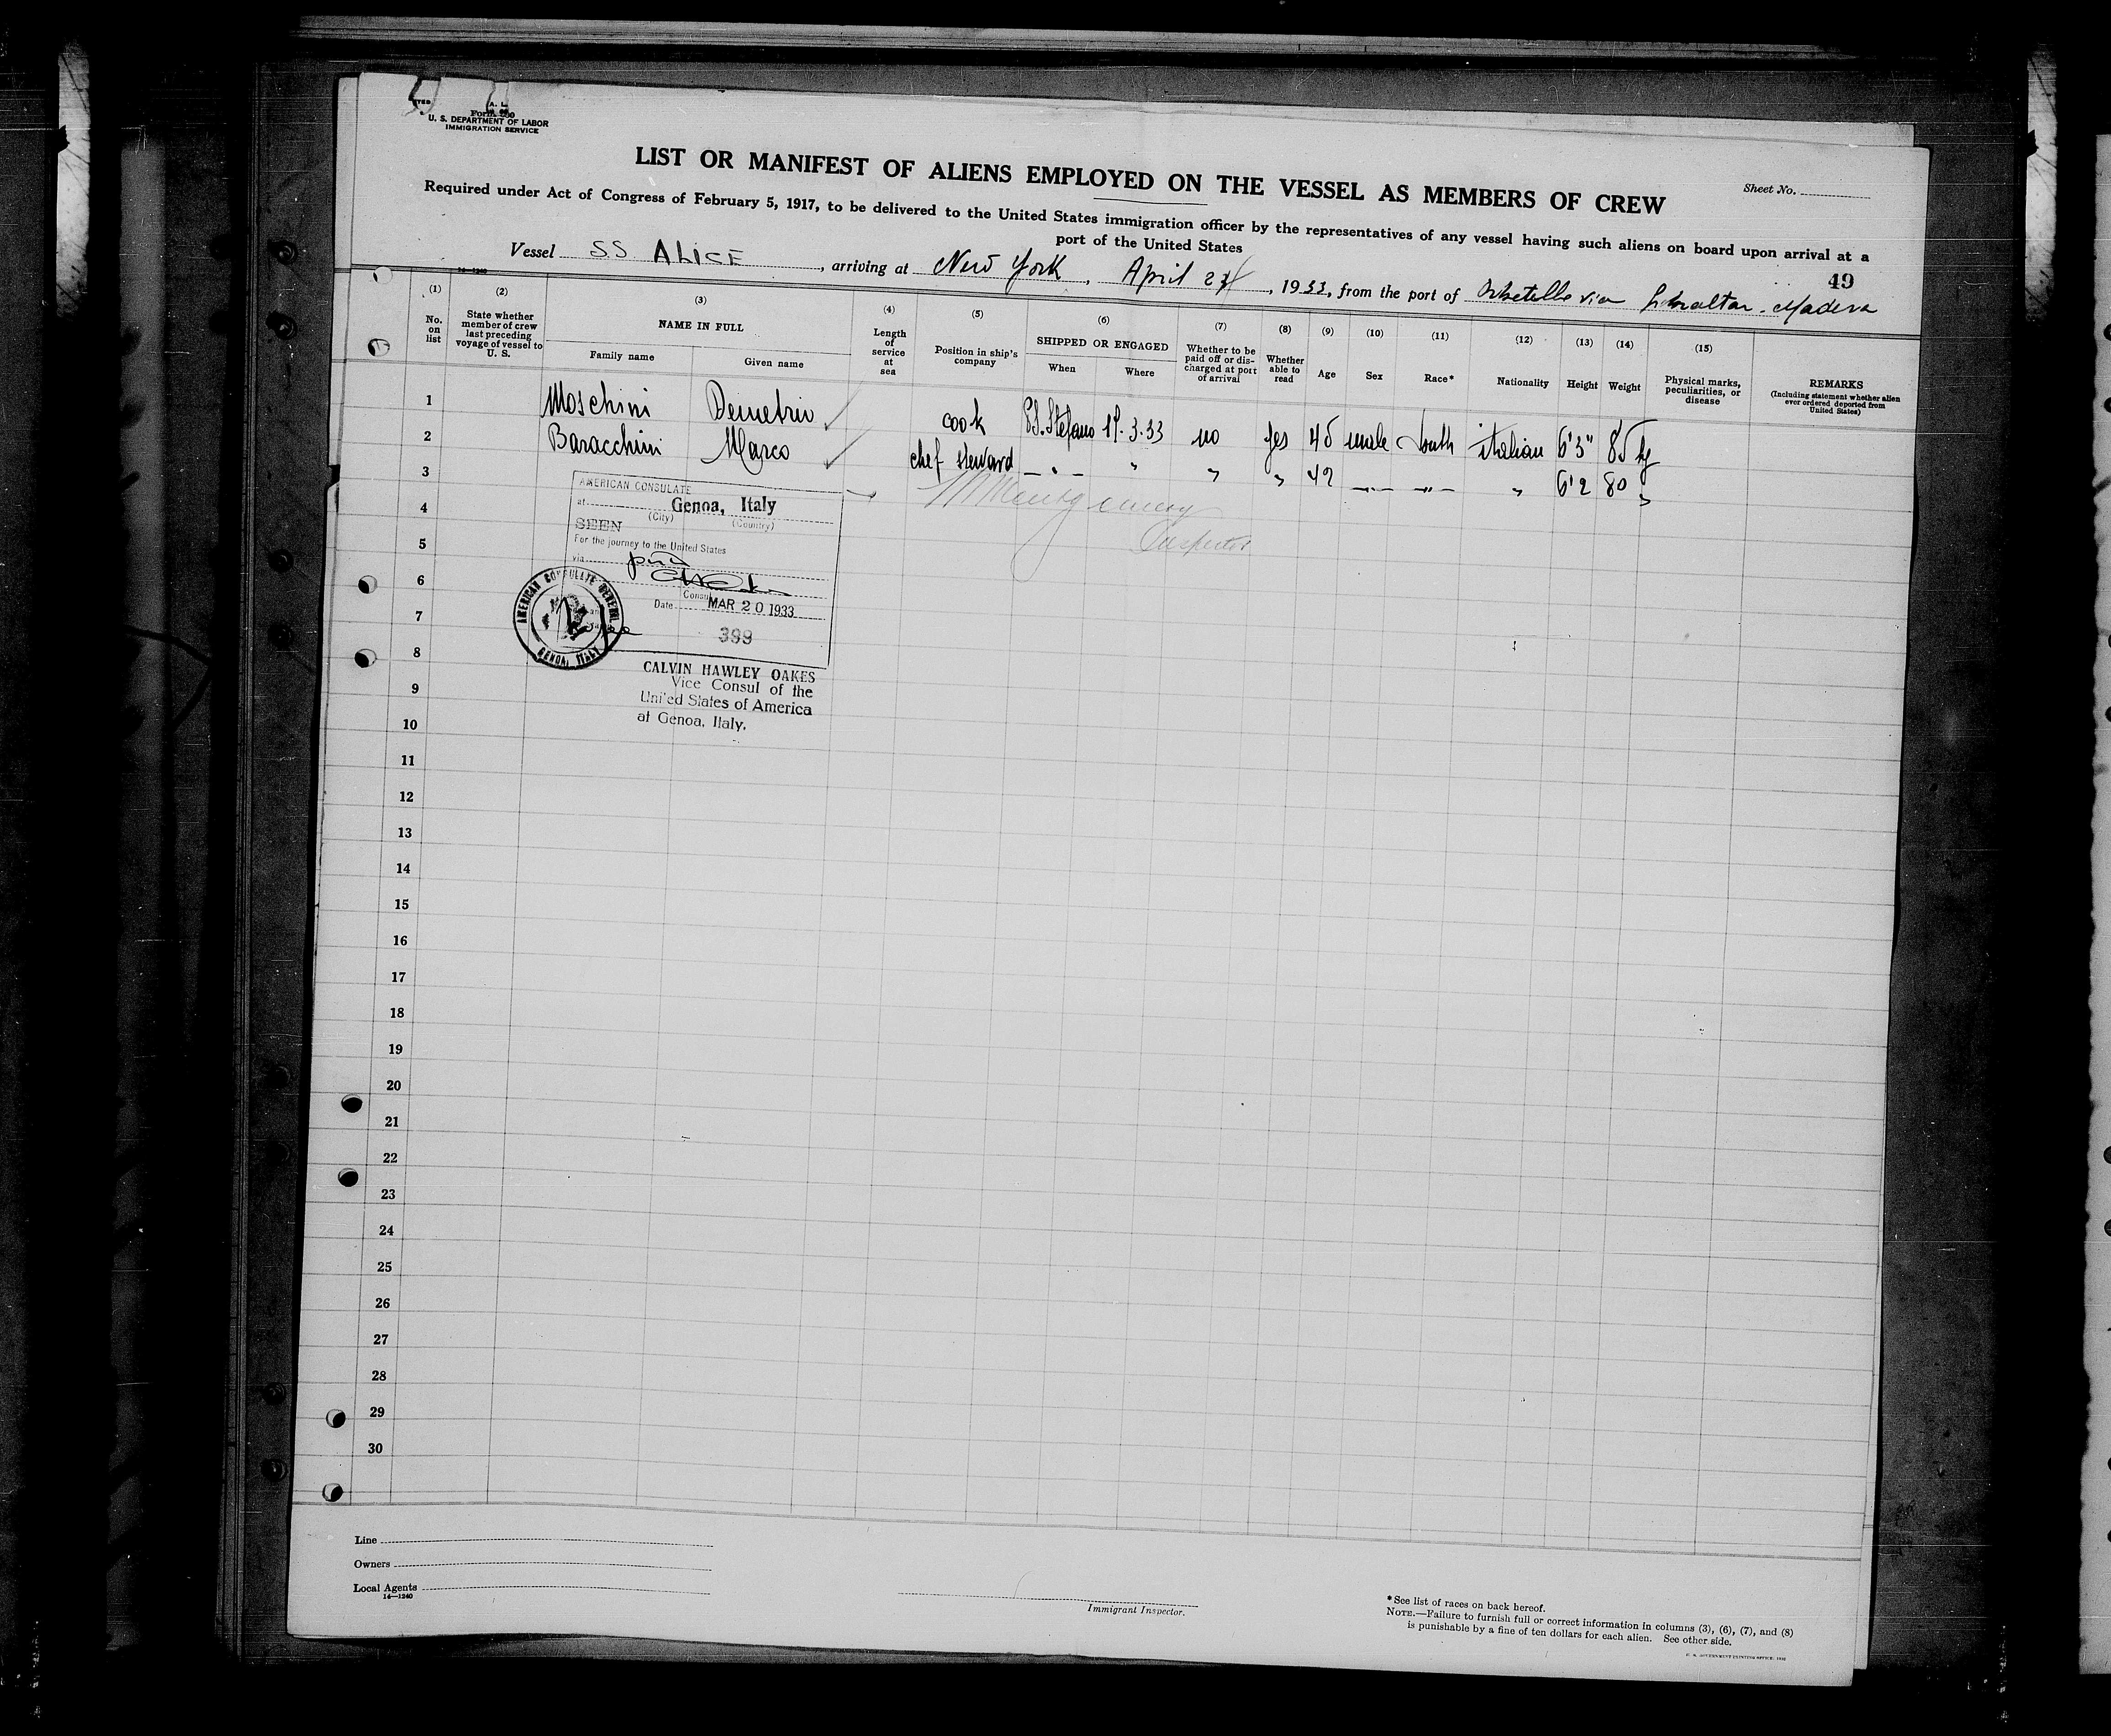 Form 680
U. S. DEPARTMENT OF LABOR
IMMIGRATION SERVICE
LIST OR MANIFEST OF ALIENS EMPLOYED ON THE VESSEL AS MEMBERS OF CREW
Sheet No.
Required under Act of Congress of February 5, 1917, to be delivered to the United States immigration officer by the representatives of any vessel having such aliens on board upon arrival at a
port of the United States
Vessel SS ALICE, arriving at New York, April, 1933, from the port of via Gibraltar - Madera
49
14-1240
(1) No. on list
(2) State whether member of crew last preceding voyage of vessel to U. S.
(3) NAME IN FULL
Family name Given name
(4) Length of service at sea
(5) Position in ship's company
(6) SHIPPED OR ENGAGED
When Where
(7) Whether to be paid off or discharged at port of arrival
(8) Whether able to read
(9) Age
(10) Sex
(11) Race*
(12) Nationality
(13) Height
(14) Weight
(15) Physical marks, peculiarities, or disease
REMARKS
(Including statement whether alien ever ordered deported from United States)
1 Moschini Demetrio cook Stefano 3.33 no yes 45 male South italian 6'3" 85 kg
2 Baracchini Marco chef steward — " — " " " 42 —"— —"— " 6'2 80 "
3
4
5
6
7
8
9
10
11
12
13
14
15
16
17
18
19
20
21
22
23
24
25
26
27
28
29
30
Montgomery
Inspector
AMERICAN CONSULATE
at Genoa, Italy
(City) (Country)
SEEN
For the journey to the United States
via
Consul
Date MAR 20 1933
399
AMERICAN CONSULATE GENERAL
GENOA, ITALY
CALVIN HAWLEY OAKES
Vice Consul of the
United States of America
at Genoa, Italy.
Line
Owners
Local Agents
14—1240
Immigrant Inspector.
*See list of races on back hereof.
NOTE.—Failure to furnish full or correct information in columns (3), (6), (7), and (8)
is punishable by a fine of ten dollars for each alien. See other side.